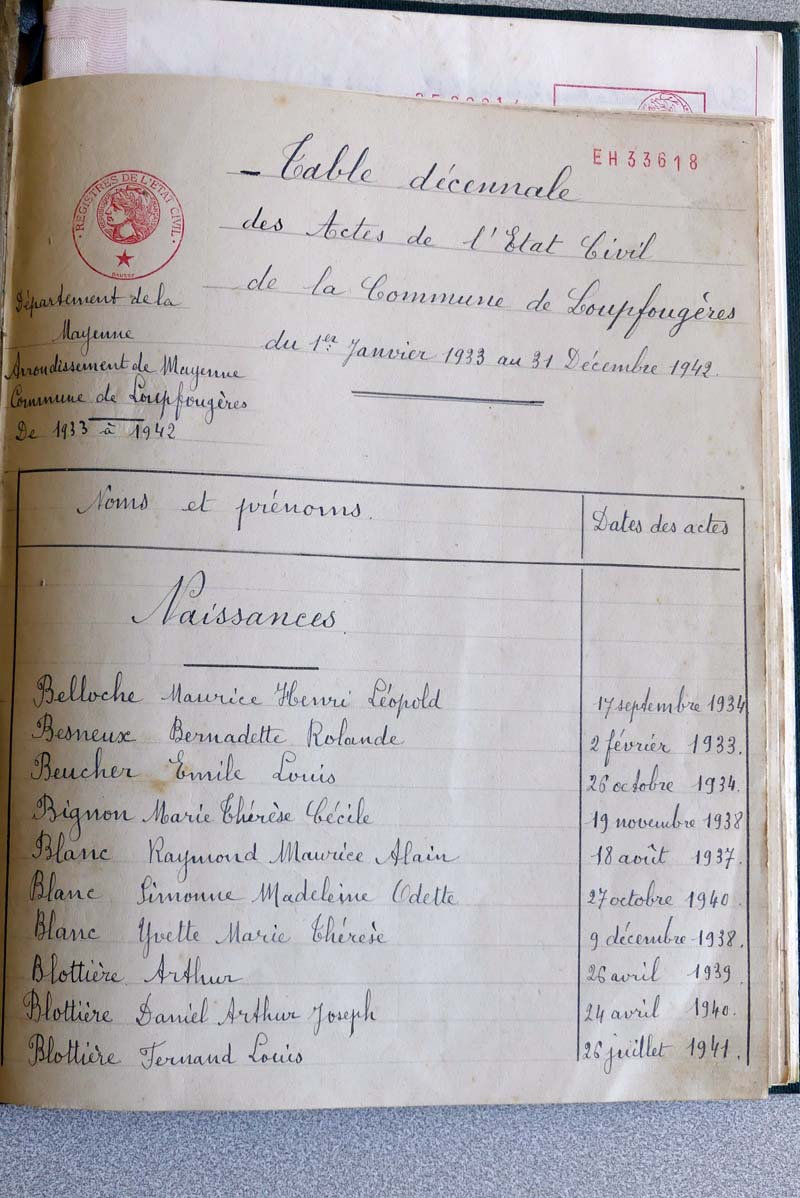 EH33618
REGISTRES DE L'ETAT CIVIL
– Table décennale
des Actes de l'Etat Civil
de la Commune de Loupfougères
du 1er Janvier 1933 au 31 Décembre 1942.
Département de la
Mayenne
Arrondissement de Mayenne
Commune de Loupfougères
De 1933 à 1942
Noms et prénoms. Dates des actes
Naissances
Belloche Maurice Henri Léopold 17 septembre 1934
Besneux Bernadette Rolande 2 février 1933.
Beucher Emile Louis 26 octobre 1934.
Bignon Marie Thérèse Cécile 19 novembre 1938
Blanc Raymond Maurice Alain 18 août 1937.
Blanc Simonne Madeleine Odette 27 octobre 1940.
Blanc Yvette Marie Thérèse 9 décembre 1938.
Blottière Arthur 26 avril 1939
Blottière Daniel Arthur Joseph 24 avril 1940.
Blottière Fernand Louis 26 juillet 1941.